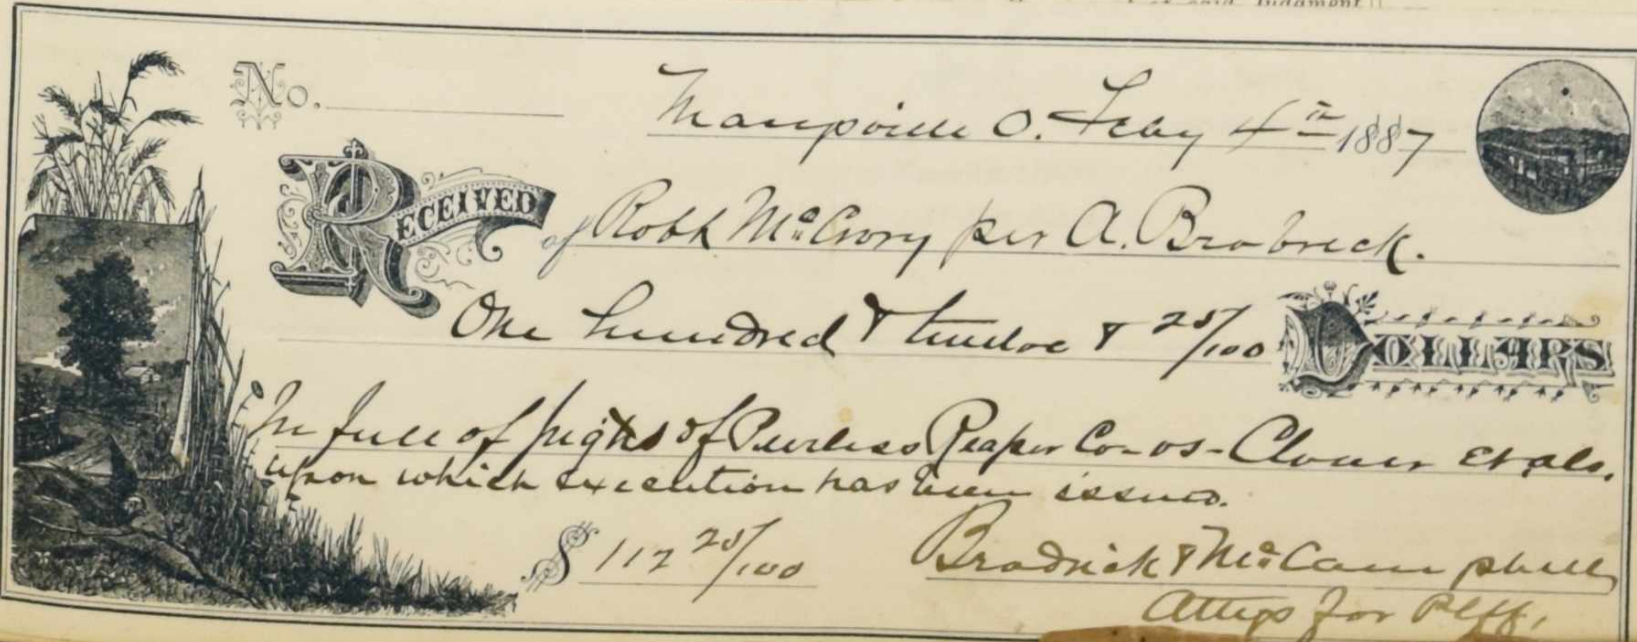 said Judgment
No. Marysville O. Feby 4th 1887
RECEIVED of Robt McCrory per A. Brobreck.
One hundred & twelve & 25/100 DOLLARS
In full of jugts of Peerless Reaper Co - vs - Clouer et als.
upon which execution has been issued.
$ 112 25/100 Brodrick & McCampbell
Attys for Plff.